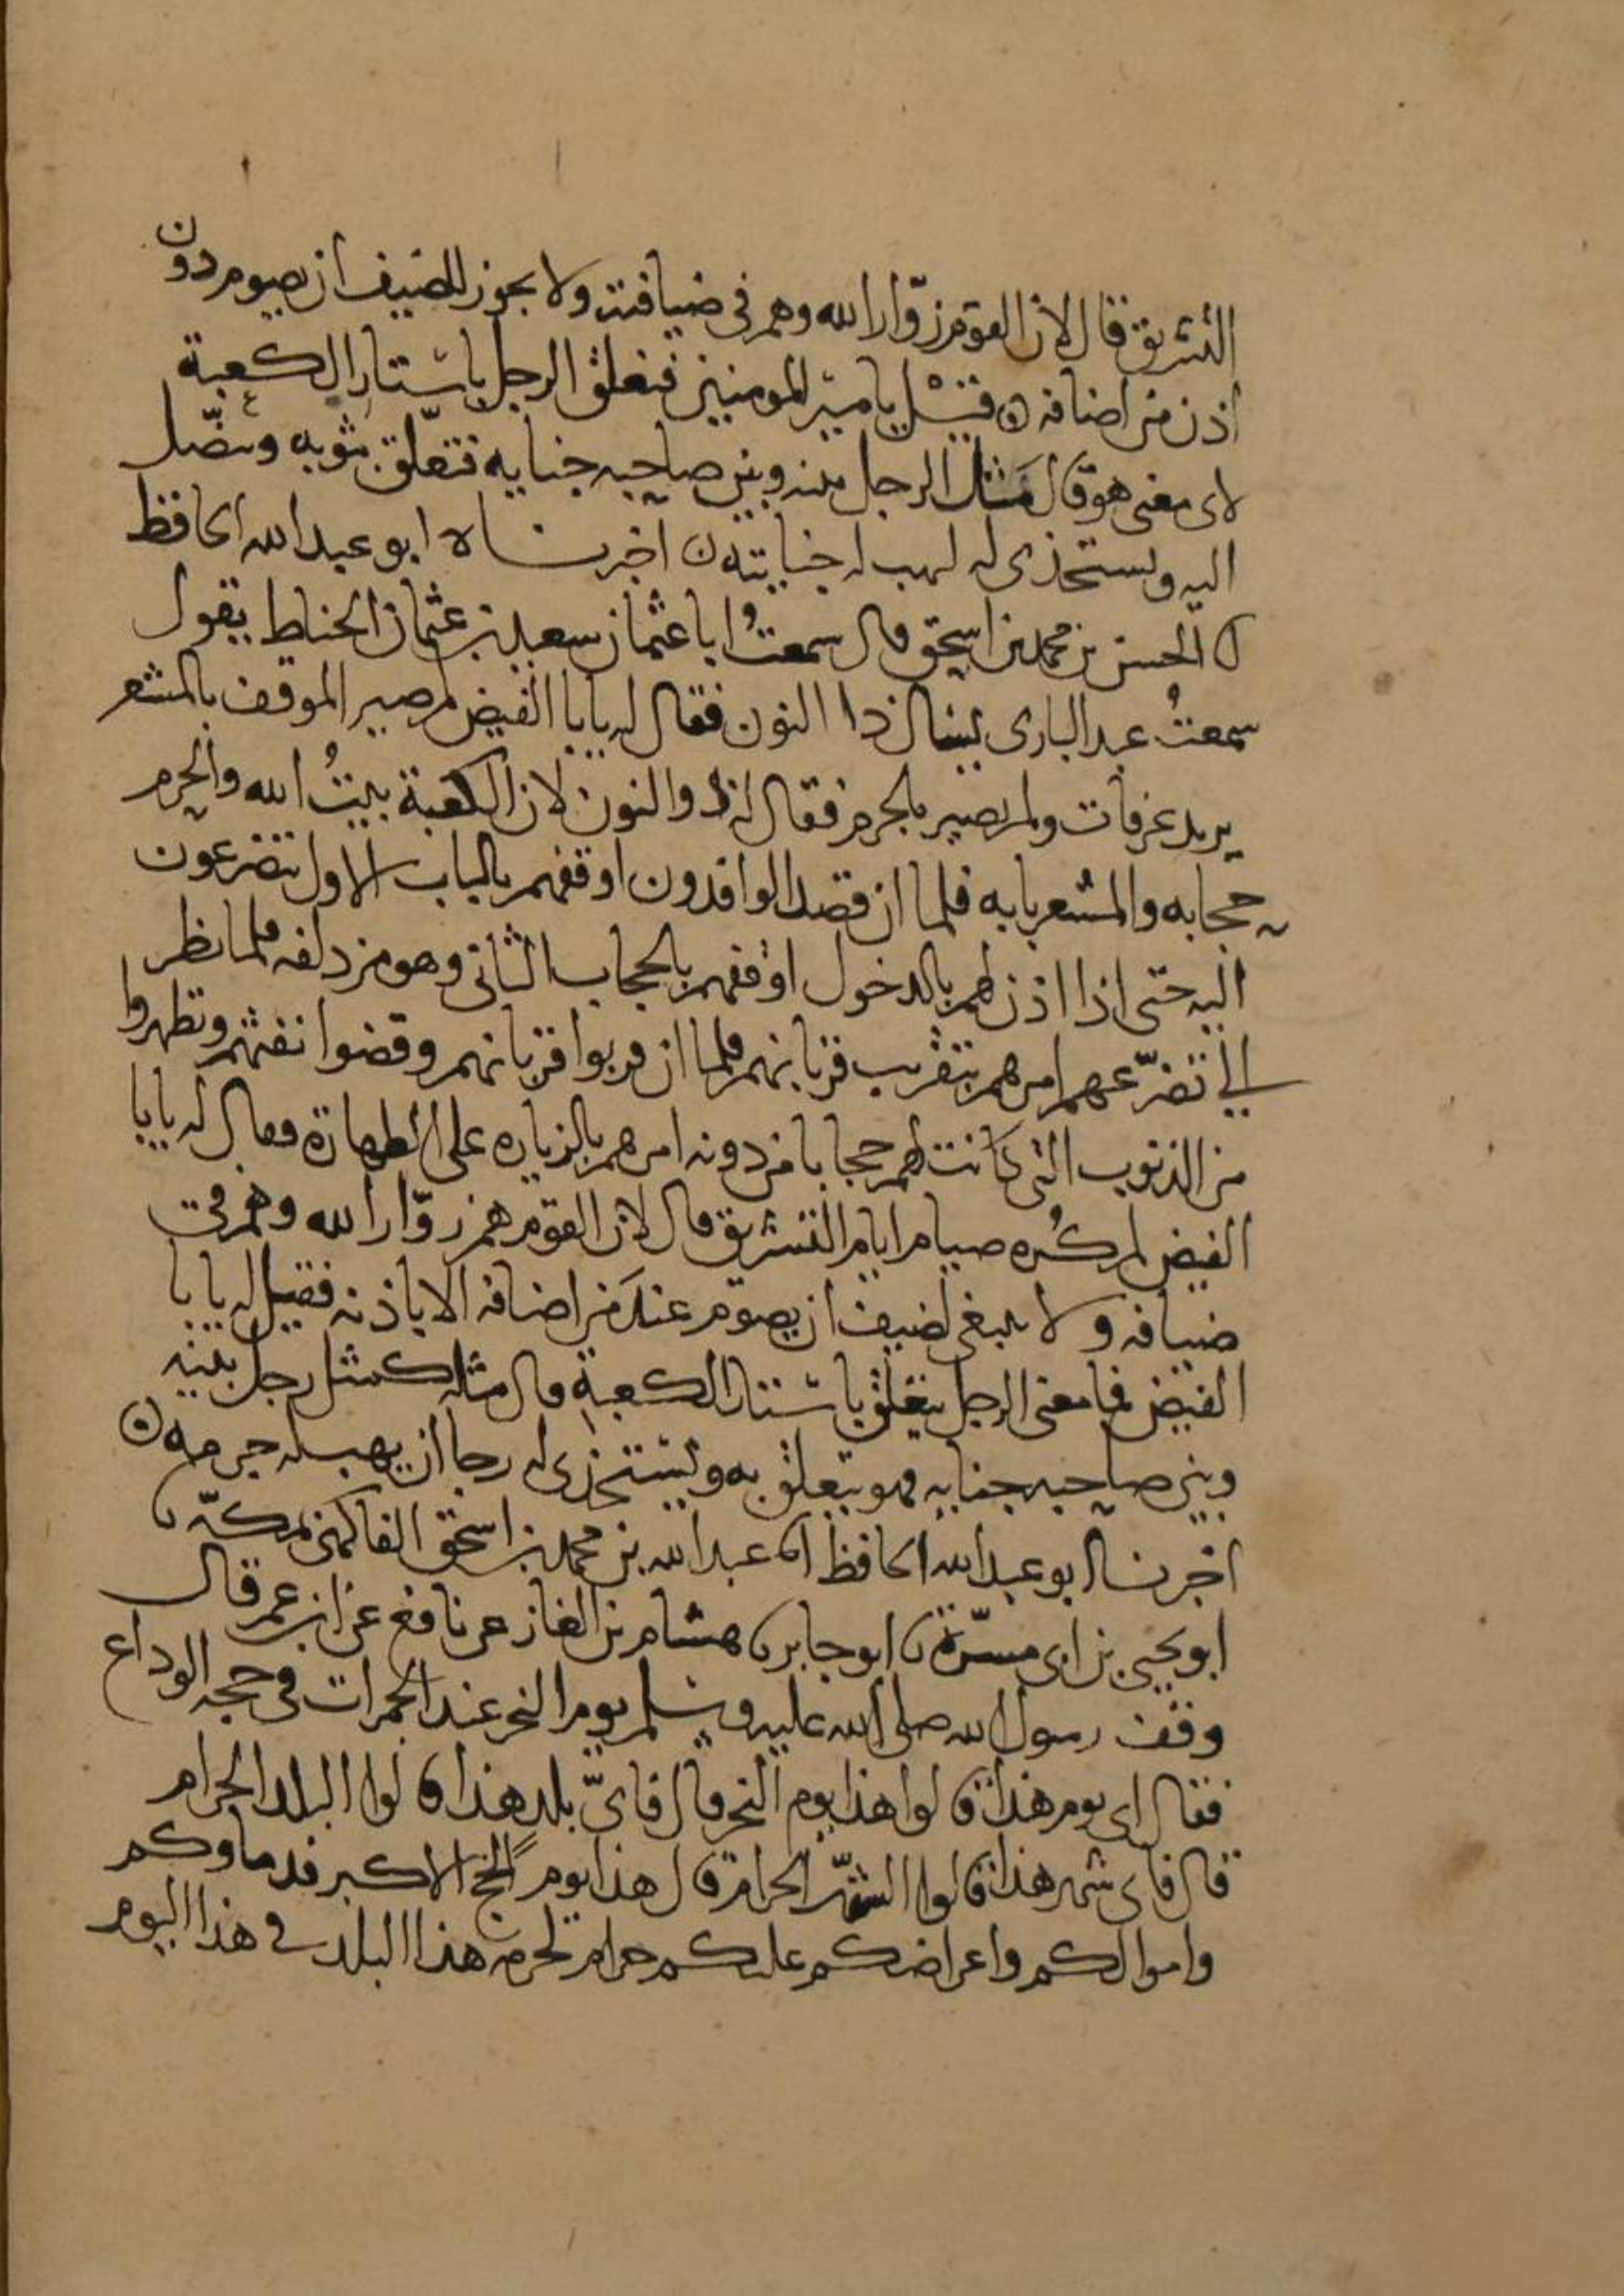 التشريق قال لان القوم زوّار الله وهم في ضيافته ولا يجوز للضيف ان يصوم دون
اذن من اضافه ۞ قيل يا امير المومنين فتعلق الرجل باستار الكعبة
لاى معنى هو قال مَثَل الرجل بينه وبين صاحبه جنايه فتعلّق بثوبه وتنصّل
اليه ويستخذى له ليهب له جنايته ن اخبرناه ابو عبد الله الحافظ
انا الحسن بن محمد بن اسحق قال سمعتُ ابا عثمان سعيد بن عثمان الحناط يقول
سمعتُ عبد البارى يسال ذا النون فقال له يا با الفيض لم صير الموقف بالمشعر
يريد عرفات ولم يصير بالحرم فقال له ذو النون لان الكعبة بيتُ الله والحرم
حجابه والمشعر بابه فلما ان قصد الوافدون اوقفهم بالباب الاول يتضرعون
اليه حتى اذا اذن لهم بالدخول اوقفهم بالحجاب الثانى وهو مزدلفه فلما نظر
الى تضرّعهم امرهم بتقريب قربانهم فلما ان قربوا قربانهم وقضوا تفثهم وتطهروا
من الذنوب التى كانت لهم حجابا من دونه امرهم بالزياره على الطهارة فقال له يا با
الفيض لم كُره صيام ايام التشريق قال لان القوم هم زوّار الله وهم فى
ضيافه ولا ينبغى لضيف ان يصوم عند من اضافه الا باذنه فقيل له يا با
الفيض فما معنى الرجل يتعلق باستار الكعبة قال مثله كمثل رجل بينه
وبين صاحبه جنايه فهو يتعلق به ويستخذى له رجا ان يهب له جرمه ۞
اخبرنا ابو عبد الله الحافظ انا عبد الله بن محمد بن اسحق الفاكهى بمكّه نا
ابو يحيى بن ابى مسرّة نا ابو جابر نا هشام بن الغاز عن نافع عن ابن عمر قال
وقف رسول الله صلى الله عليه وسلم يوم النحر عند الجمرات فى حجه الوداع
فقال اى يوم هذا قالوا هذا يوم النحر قال فاىّ بلد هذا قالوا البلد الحرام
قال فاى شهر هذا قالوا الشهر الحرام قال هذا يوم الحج الاكبر فدماوكم
واموالكم واعراضكم عليكم حرام كحرمه هذا البلد فى هذا اليوم